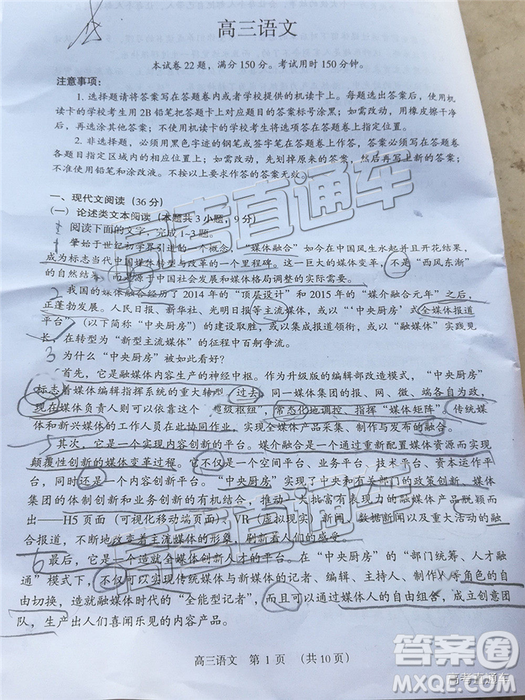 高三语文
本试卷22题，满分150分。考试用时150分钟。
注意事项：
1. 选择题请将答案写在答题卷内或者学校提供的机读卡上。每题选出答案后，使用机
读卡的学校考生用2B铅笔把答题卡上对应题目的答案标号涂黑；如需改动，用橡皮擦干净
后，再选涂其他答案；不使用机读卡的学校考生请将答案写在答题卷上指定位置。
2. 非选择题，必须用黑色字迹的钢笔或签字笔在答题卷上作答，答案必须写在答题卷
各题目指定区域内的相应位置上；如需改动，先划掉原来的答案，然后再写上新的答案；
不准使用铅笔和涂改液。不按以上要求作答的答案无效。
一、现代文阅读（36分）
（一）论述类文本阅读（本题共3小题，9分）
阅读下面的文字，完成1-3题。
肇始于世纪之交引进的一个概念，“媒体融合”如今在中国风生水起并且开花结果，
成为标志当代中国媒体转型与改革的一个里程碑。这一巨大的媒体变革，不是“西风东渐”
的自然结果，而是源于中国社会发展和媒体格局调整的实际需要。
2 我国的媒体融合经历了2014年的“顶层设计”和2015年的“媒介融合元年”之后，
正蓬勃发展。人民日报、新华社、光明日报等主流媒体，或以“‘中央厨房’式全媒体报道
平台”（以下简称“中央厨房”）的建设取胜，或以集成报道领衔，或以“融媒体”实践见
长，在转型为“新型主流媒体”的征程中百舸争流。
3 为什么“中央厨房”被如此看好？
首先，它是融媒体内容生产的神经中枢。作为升级版的编辑部改造模式，“中央厨房”
标志着媒体编辑指挥系统的重大转型。过去，同一媒体集团的报、网、微、端各自为政，
现在媒体负责人则可以依靠这个“超级枢纽”，常态化地调控、指挥“媒体矩阵”，传统媒
体和新兴媒体的工作人员在此协同作业，实现全媒体产品采集、制作与发布的融合。
5 其次，它是一个实现内容创新的平台。媒介融合是一个通过重新配置媒体资源而实现
颠覆性创新的媒体变革过程。它不仅是一个空间平台、业务平台、技术平台、资本运作平
台，同时还是一个内容创新平台。“中央厨房”实现了中央和有关部门的政策创新、媒体
集团的体制创新和业务创新的有机结合，推动一大批富有表现力的融媒体产品脱颖而
出——H5页面（可视化移动端页面）、VR（虚拟现实）新闻、数据新闻以及重大活动的融
合报道，不断地改变着主流媒体的形象，刷新着人们的感受。
6 最后，它是一个造就全媒体创新人才的平台。在“中央厨房”的“部门统筹、人才融
通”模式下，不仅可以实现传统媒体与新媒体的记者、编辑、主持人、制作人等角色的自
由切换，造就融媒体时代的“全能型记者”，而且可以通过媒体人的自由组合，成立创意团
队，生产出人们喜闻乐见的内容产品。
高三语文 第1页 （共10页）
直通车
答案圈
MXQE.COM